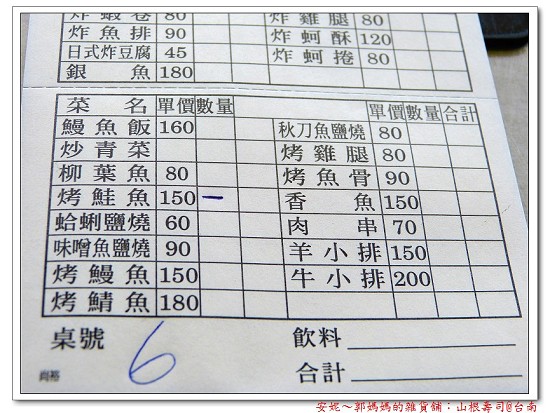 炸蝦卷 80 炸雞腿 80
炸魚排 90 炸蚵酥 120
日式炸豆腐 45 炸蚵捲 80
銀魚 180
菜名 單價 數量 單價 數量 合計
鰻魚飯 160 秋刀魚鹽燒 80
炒青菜 烤雞腿 80
柳葉魚 80 烤魚骨 90
烤鮭魚 150 一 香魚 150
蛤蜊鹽燒 60 肉串 70
味噌魚鹽燒 90 羊小排 150
烤鰻魚 150 牛小排 200
烤鯖魚 180
桌號 6 飲料
合計
安妮~郭媽媽的雜貨舖:山根壽司@台南